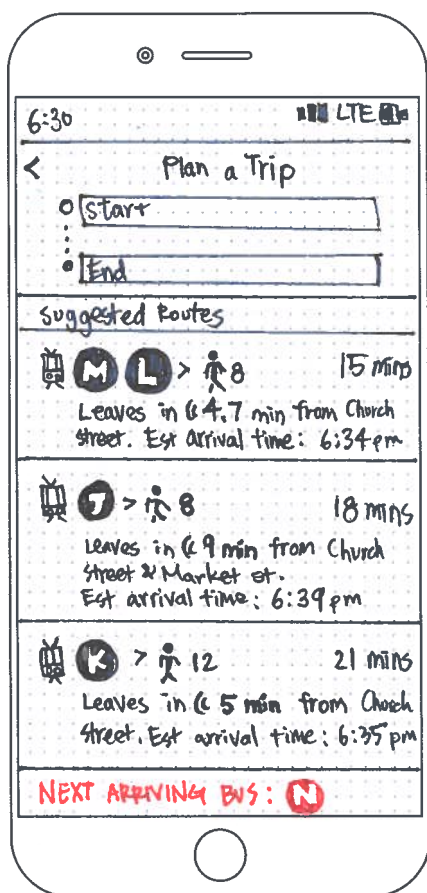 6:30 LTE
< Plan a Trip
Start
End
Suggested Routes
M L > 8 15 mins
Leaves in 4.7 min from Church
street. Est arrival time: 6:34pm
J > 8 18 mins
Leaves in 9 min from Church
street & Market st.
Est arrival time: 6:39pm
K > 12 21 mins
Leaves in 5 min from Church
street. Est arrival time: 6:35pm
NEXT ARRIVING BUS: N